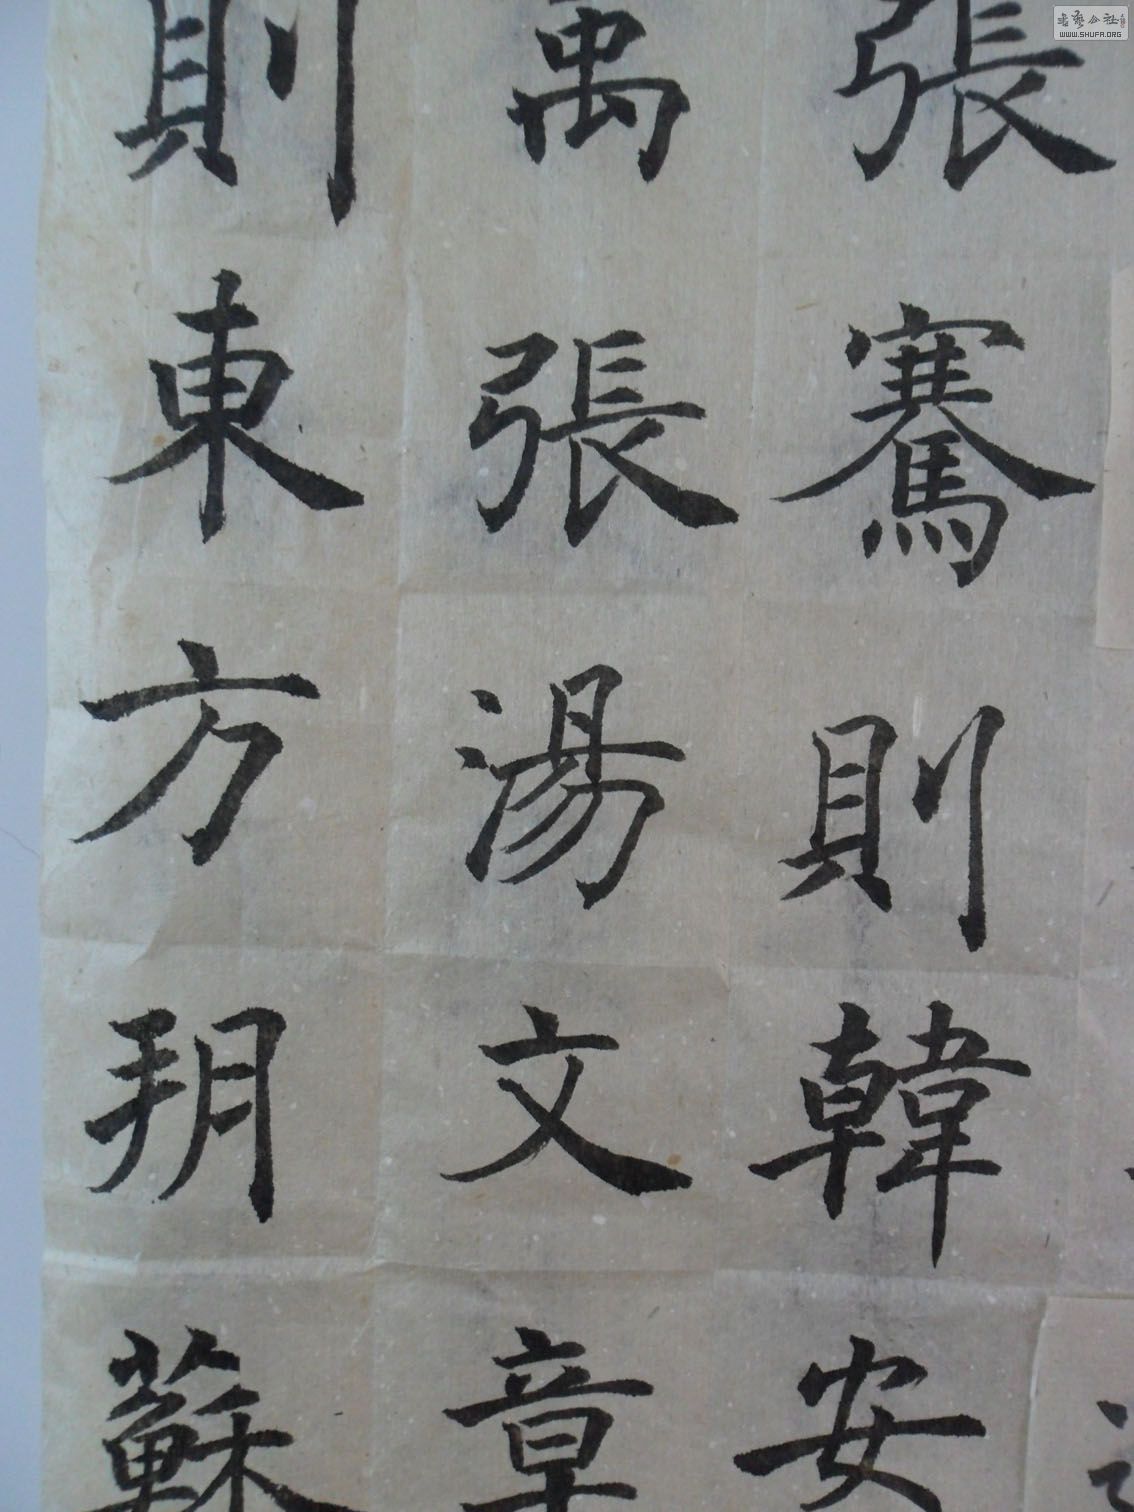 張騫則韓安
萬張湯文章
則東方朔蘇
WWW.SHUFA.ORG